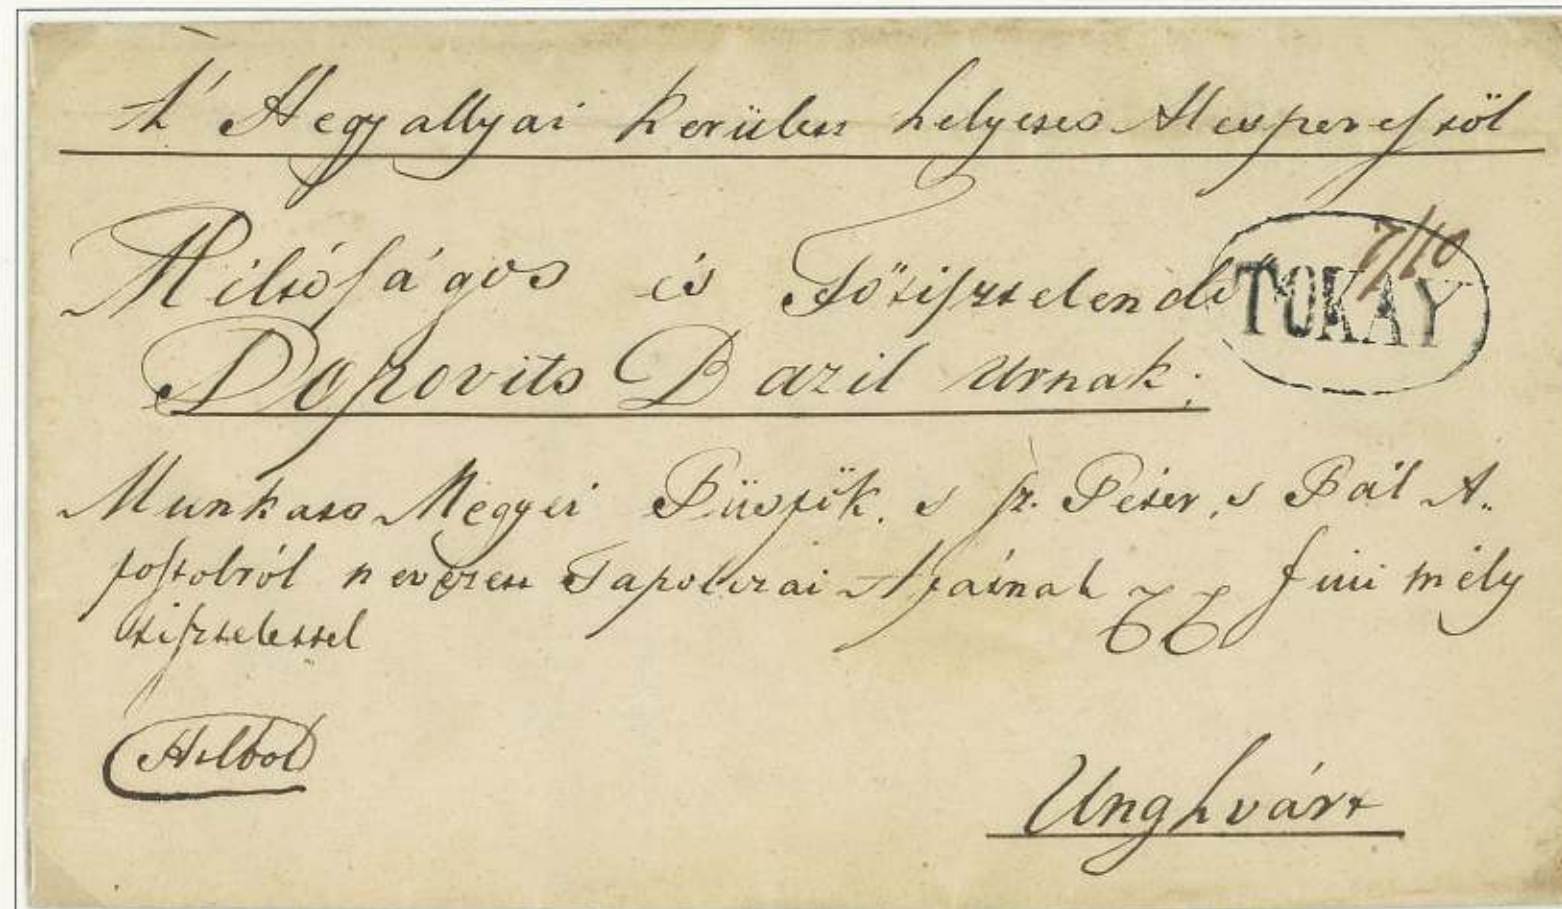 A' Hegyallyai Kerület helyetes Alesperestöl
Méltóságos és Fötisztelendö
TOKAY
7/10
Popovits Bazil Urnak;
Munkats Megyei Püspök, s sz. Péter, s Pál A-
postolról nevezett Tapolczai Apátnak fiúi mély
tisztelettel
Hilbol
Unghvárt